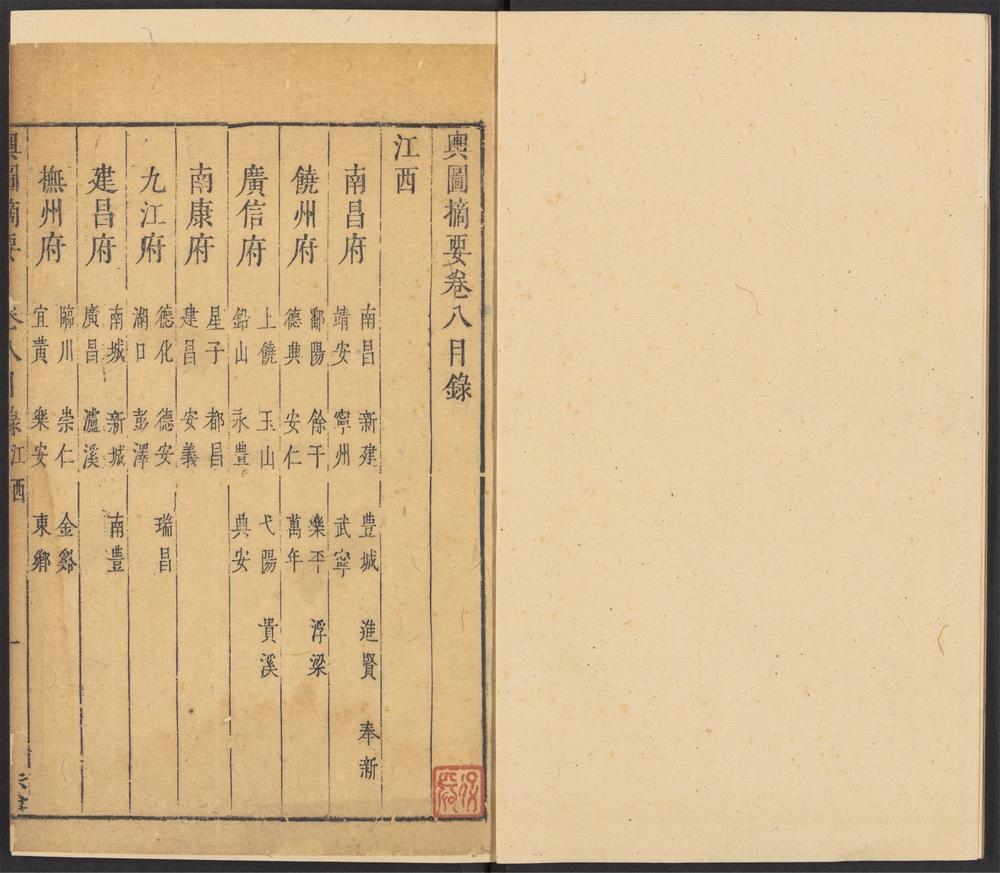 輿圖摘要卷八目錄
江西
南昌府 南昌 新建 豊城 進賢 奉新
靖安 寧州 武寧
饒州府 鄱陽 餘干 樂平 浮梁
德興 安仁 萬年
廣信府 上饒 玉山 弋陽 貴溪
鉛山 永豊 興安
南康府 星子 都昌
建昌 安義
九江府 德化 德安 瑞昌
湖口 彭澤
建昌府 南城 新城 南豊
廣昌 瀘溪
撫州府 臨川 崇仁 金谿
宜黃 樂安 東鄉
輿圖摘要 卷八目錄 江西 一